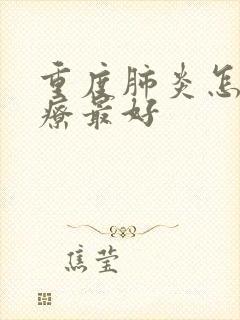 重度肺炎怎
疗最好
焦莹